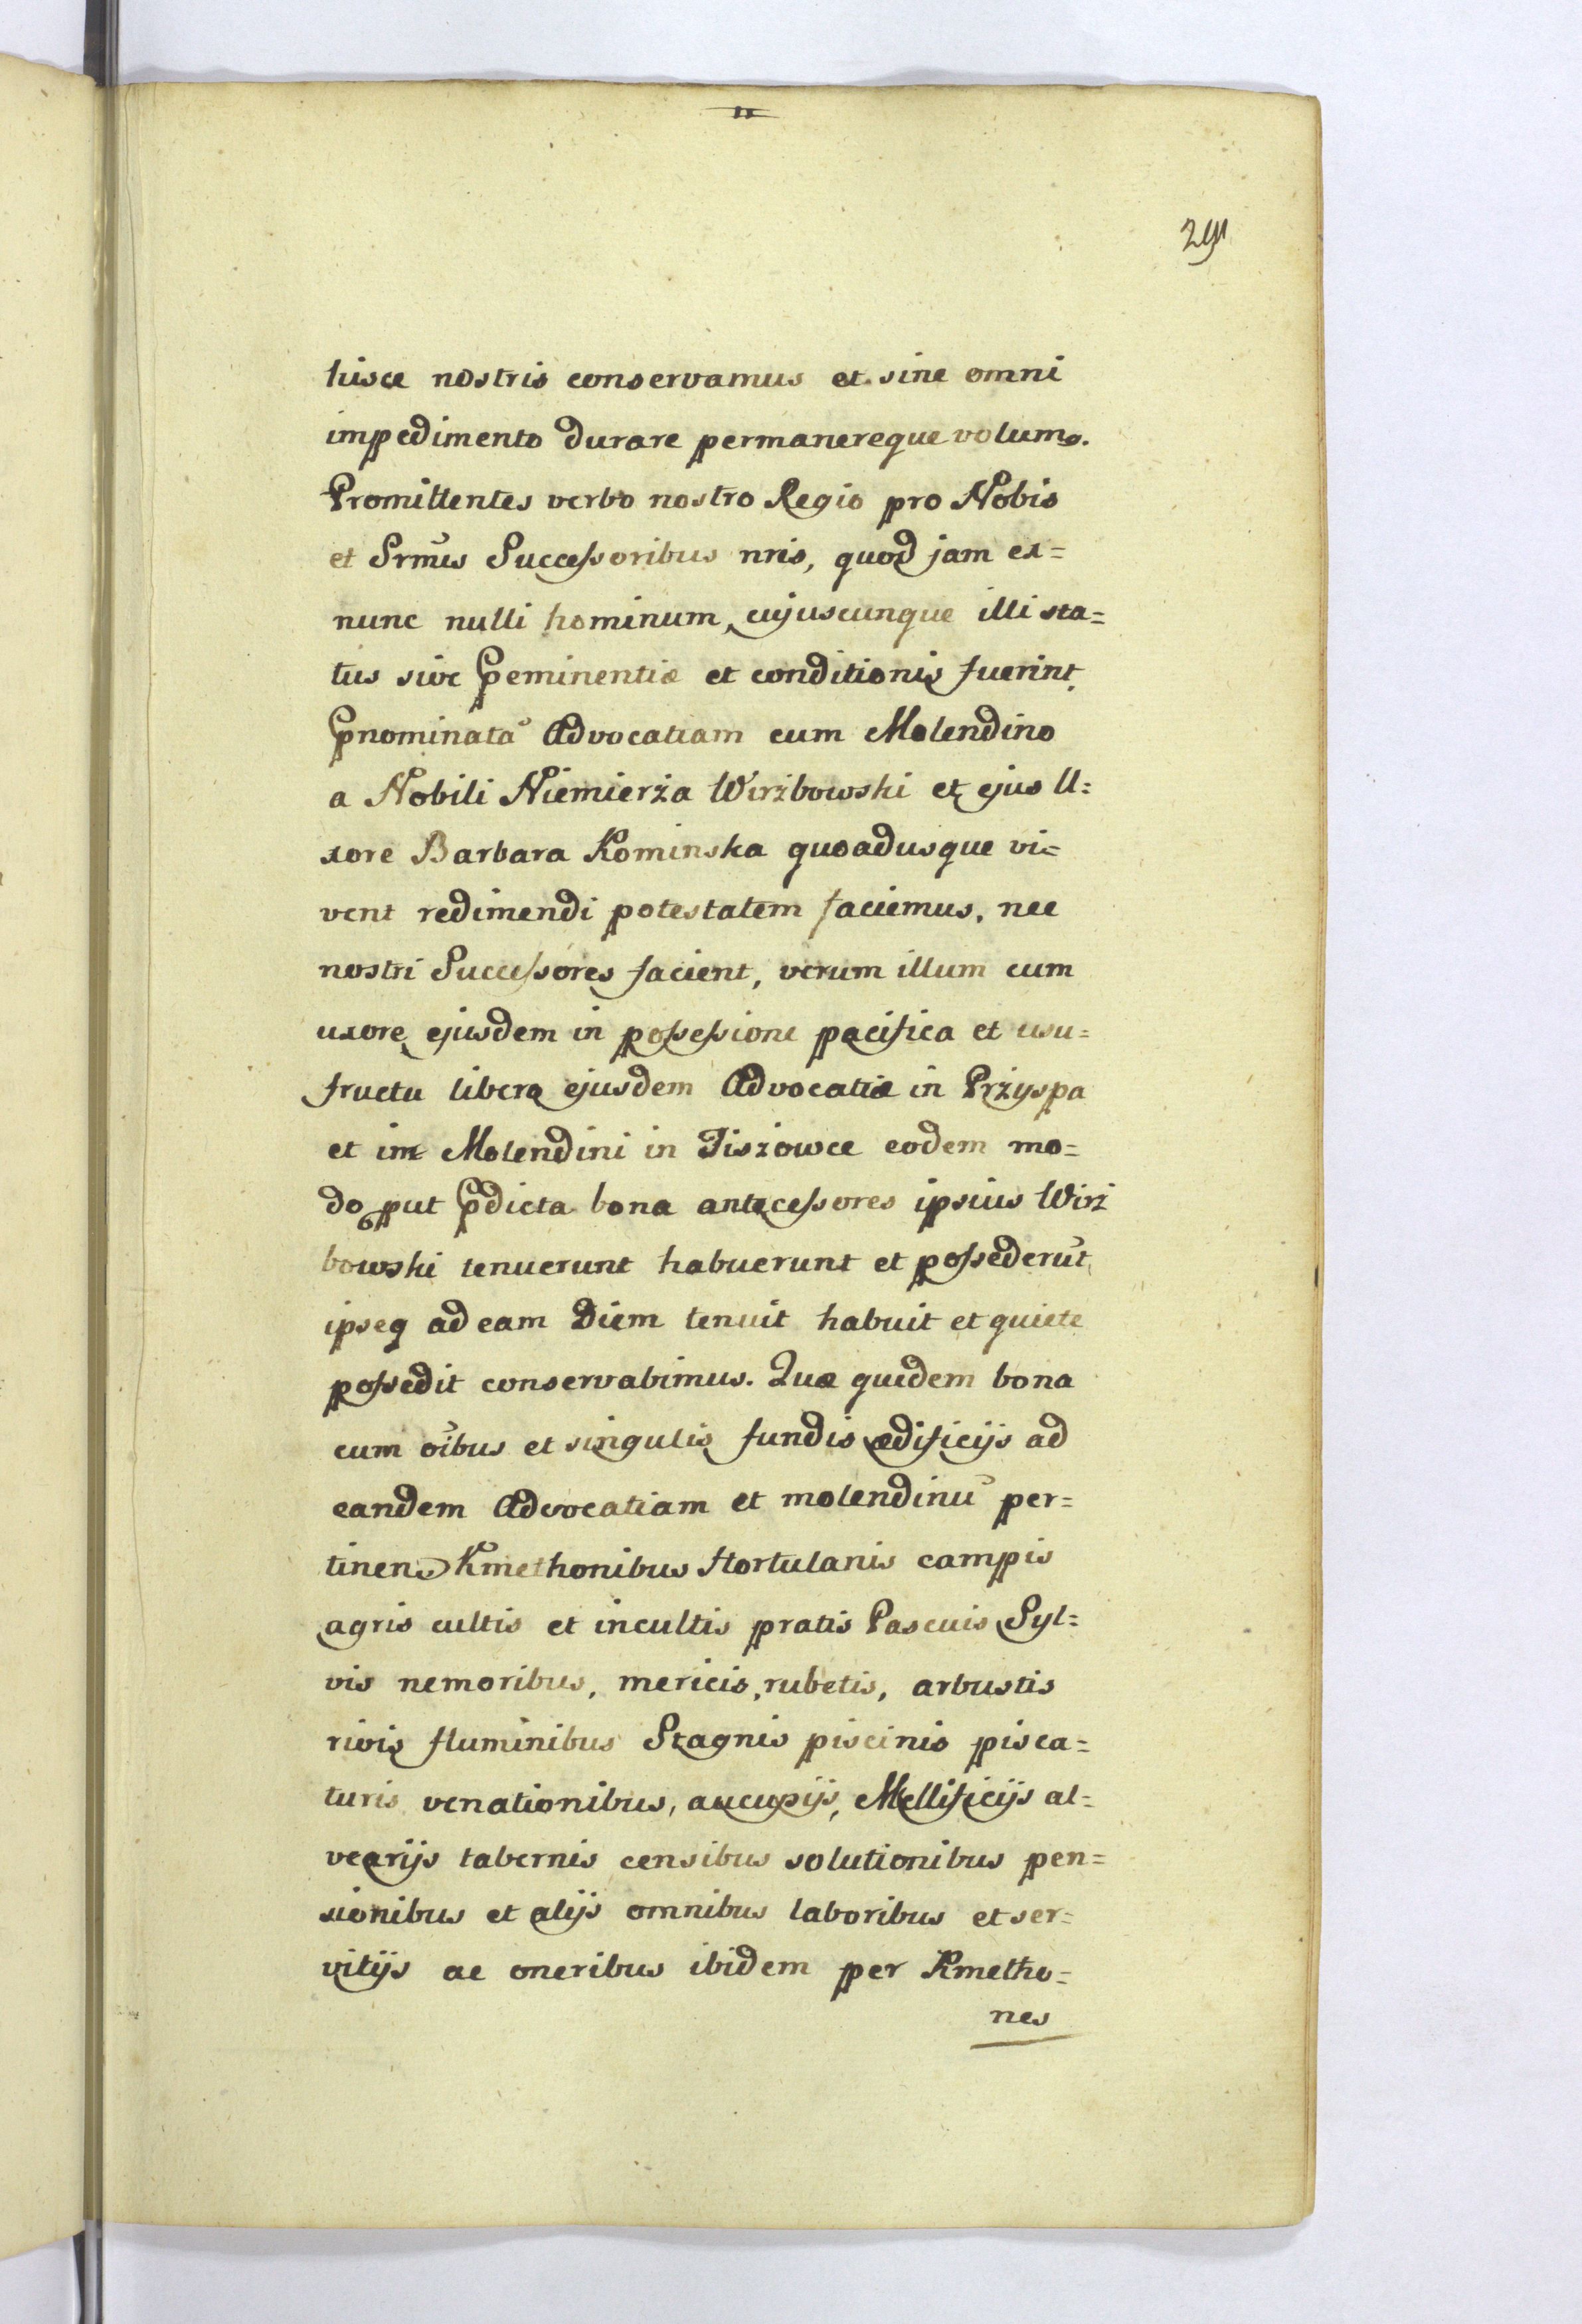 hisce nostris conservamus et sine omni
impedimento durare permanereque volumꝰ.
Promittentes verbo nostro Regio pro Nobis
et Srmūs Successoribus nris, quod jam ex=
nunc nulli hominum, cujuscunque illi sta=
tus sive Peminentiæ et conditionis fuerint,
Pnominatā Advocatiam cum Molendino
a Nobili Niemierża Wirżbowski et ejus U=
xore Barbara Kominska quoadusque vi=
vent redimendi potestatem faciemus, nec
nostri Successores facient, verum illum cum
uxore ejusdem in possessione pacifica et usu=
fructu libero ejusdem Advocatiæ in Prżyspa
et Molendini in Tiszowce eodem mo=
do put Pdicta bona antecessores ipsius Wirż
bowski tenuerunt habuerunt et possederūt,
ipseq ad eam Diem tenuit habuit et quiete
possedit conservabimus. Quæ quidem bona
cum oībus et singulis fundis ædificijs ad
eandem Advocatiam et molendinū per=
tinen. Kmethonibus Hortulanis campis
agris cultis et incultis pratis Pascuis Syl=
vis nemoribus, mericis, rubetis, arbustis
rivis fluminibus Stagnis piscinis pisca=
turis venationibus, aucupijs, Mellificijs al=
vearijs tabernis censibus solutionibus pen=
sionibus et alijs omnibus laboribus et ser=
vitijs ac oneribus ibidem per Kmetho=
nes